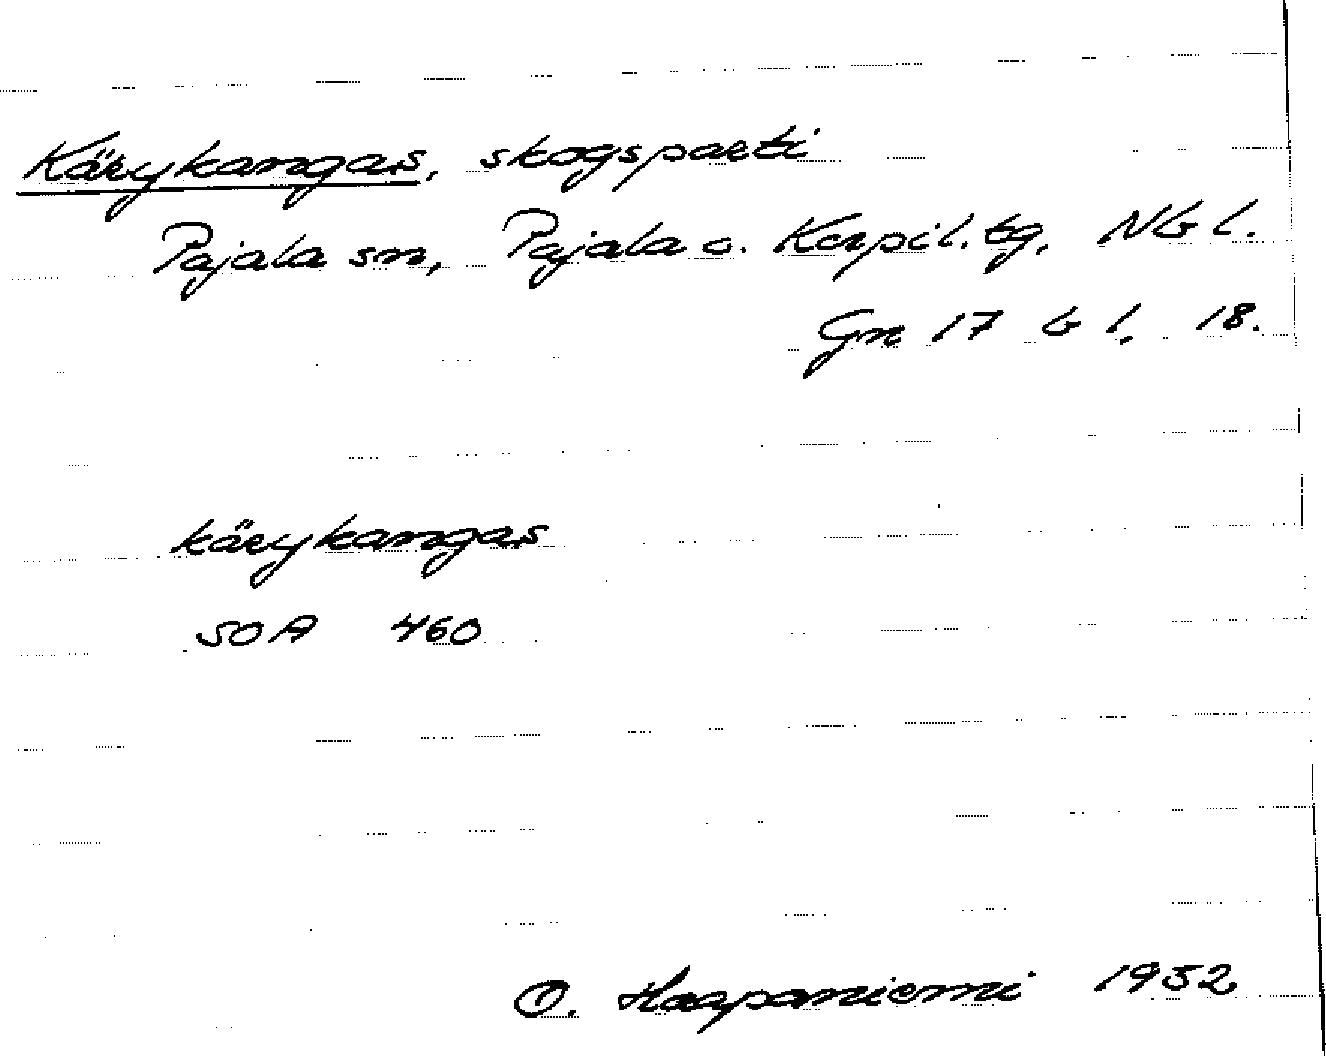 Kärykangas, skogsparti
Pajala sn, Pajala o. Korpil. tg, Nb l.
Gn 17 b l. 18.
kärykangas
SOA 460
O. Haapaniemi 1952